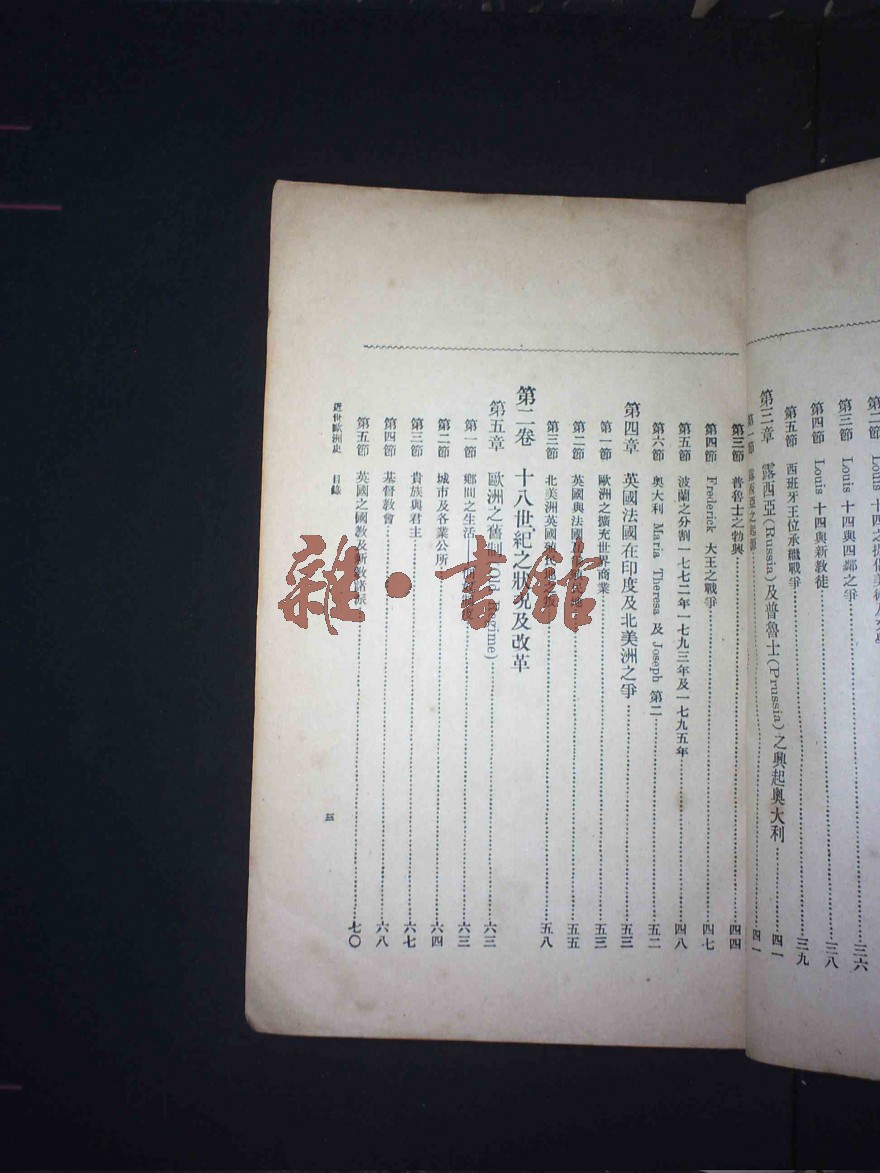 第三節 Louis 十四與四鄰之爭 三八
第四節 Louis 十四與新教徒 三八
第五節 西班牙王位承繼戰爭 三九
第三章 露西亞(Russia)及普魯士(Prussia)之興起奧大利 四一
第一節 露西亞之起源 四一
第三節 普魯士之勃興 四四
第四節 Frederick 大王之戰爭 四七
第五節 波蘭之分割一七七二年一七九三年及一七九五年 四八
第六節 奧大利 Maria Theresa 及 Joseph 第二 五二
第四章 英國法國在印度及北美洲之爭 五三
第一節 歐洲之擴充世界商業 五三
第二節 英國與法國互爭殖民地 五五
第三節 北美洲英國殖民地之叛 五八
第二卷 十八世紀之狀況及改革
第五章 歐洲之舊制(Old Régime) 六三
第一節 鄉間之生活 六三
第二節 城市及各業公所 六四
第三節 貴族與君主 六七
第四節 基督教會 六八
第五節 英國之國教及新教諸派 七〇
近世歐洲史 目錄
三
雜·書館